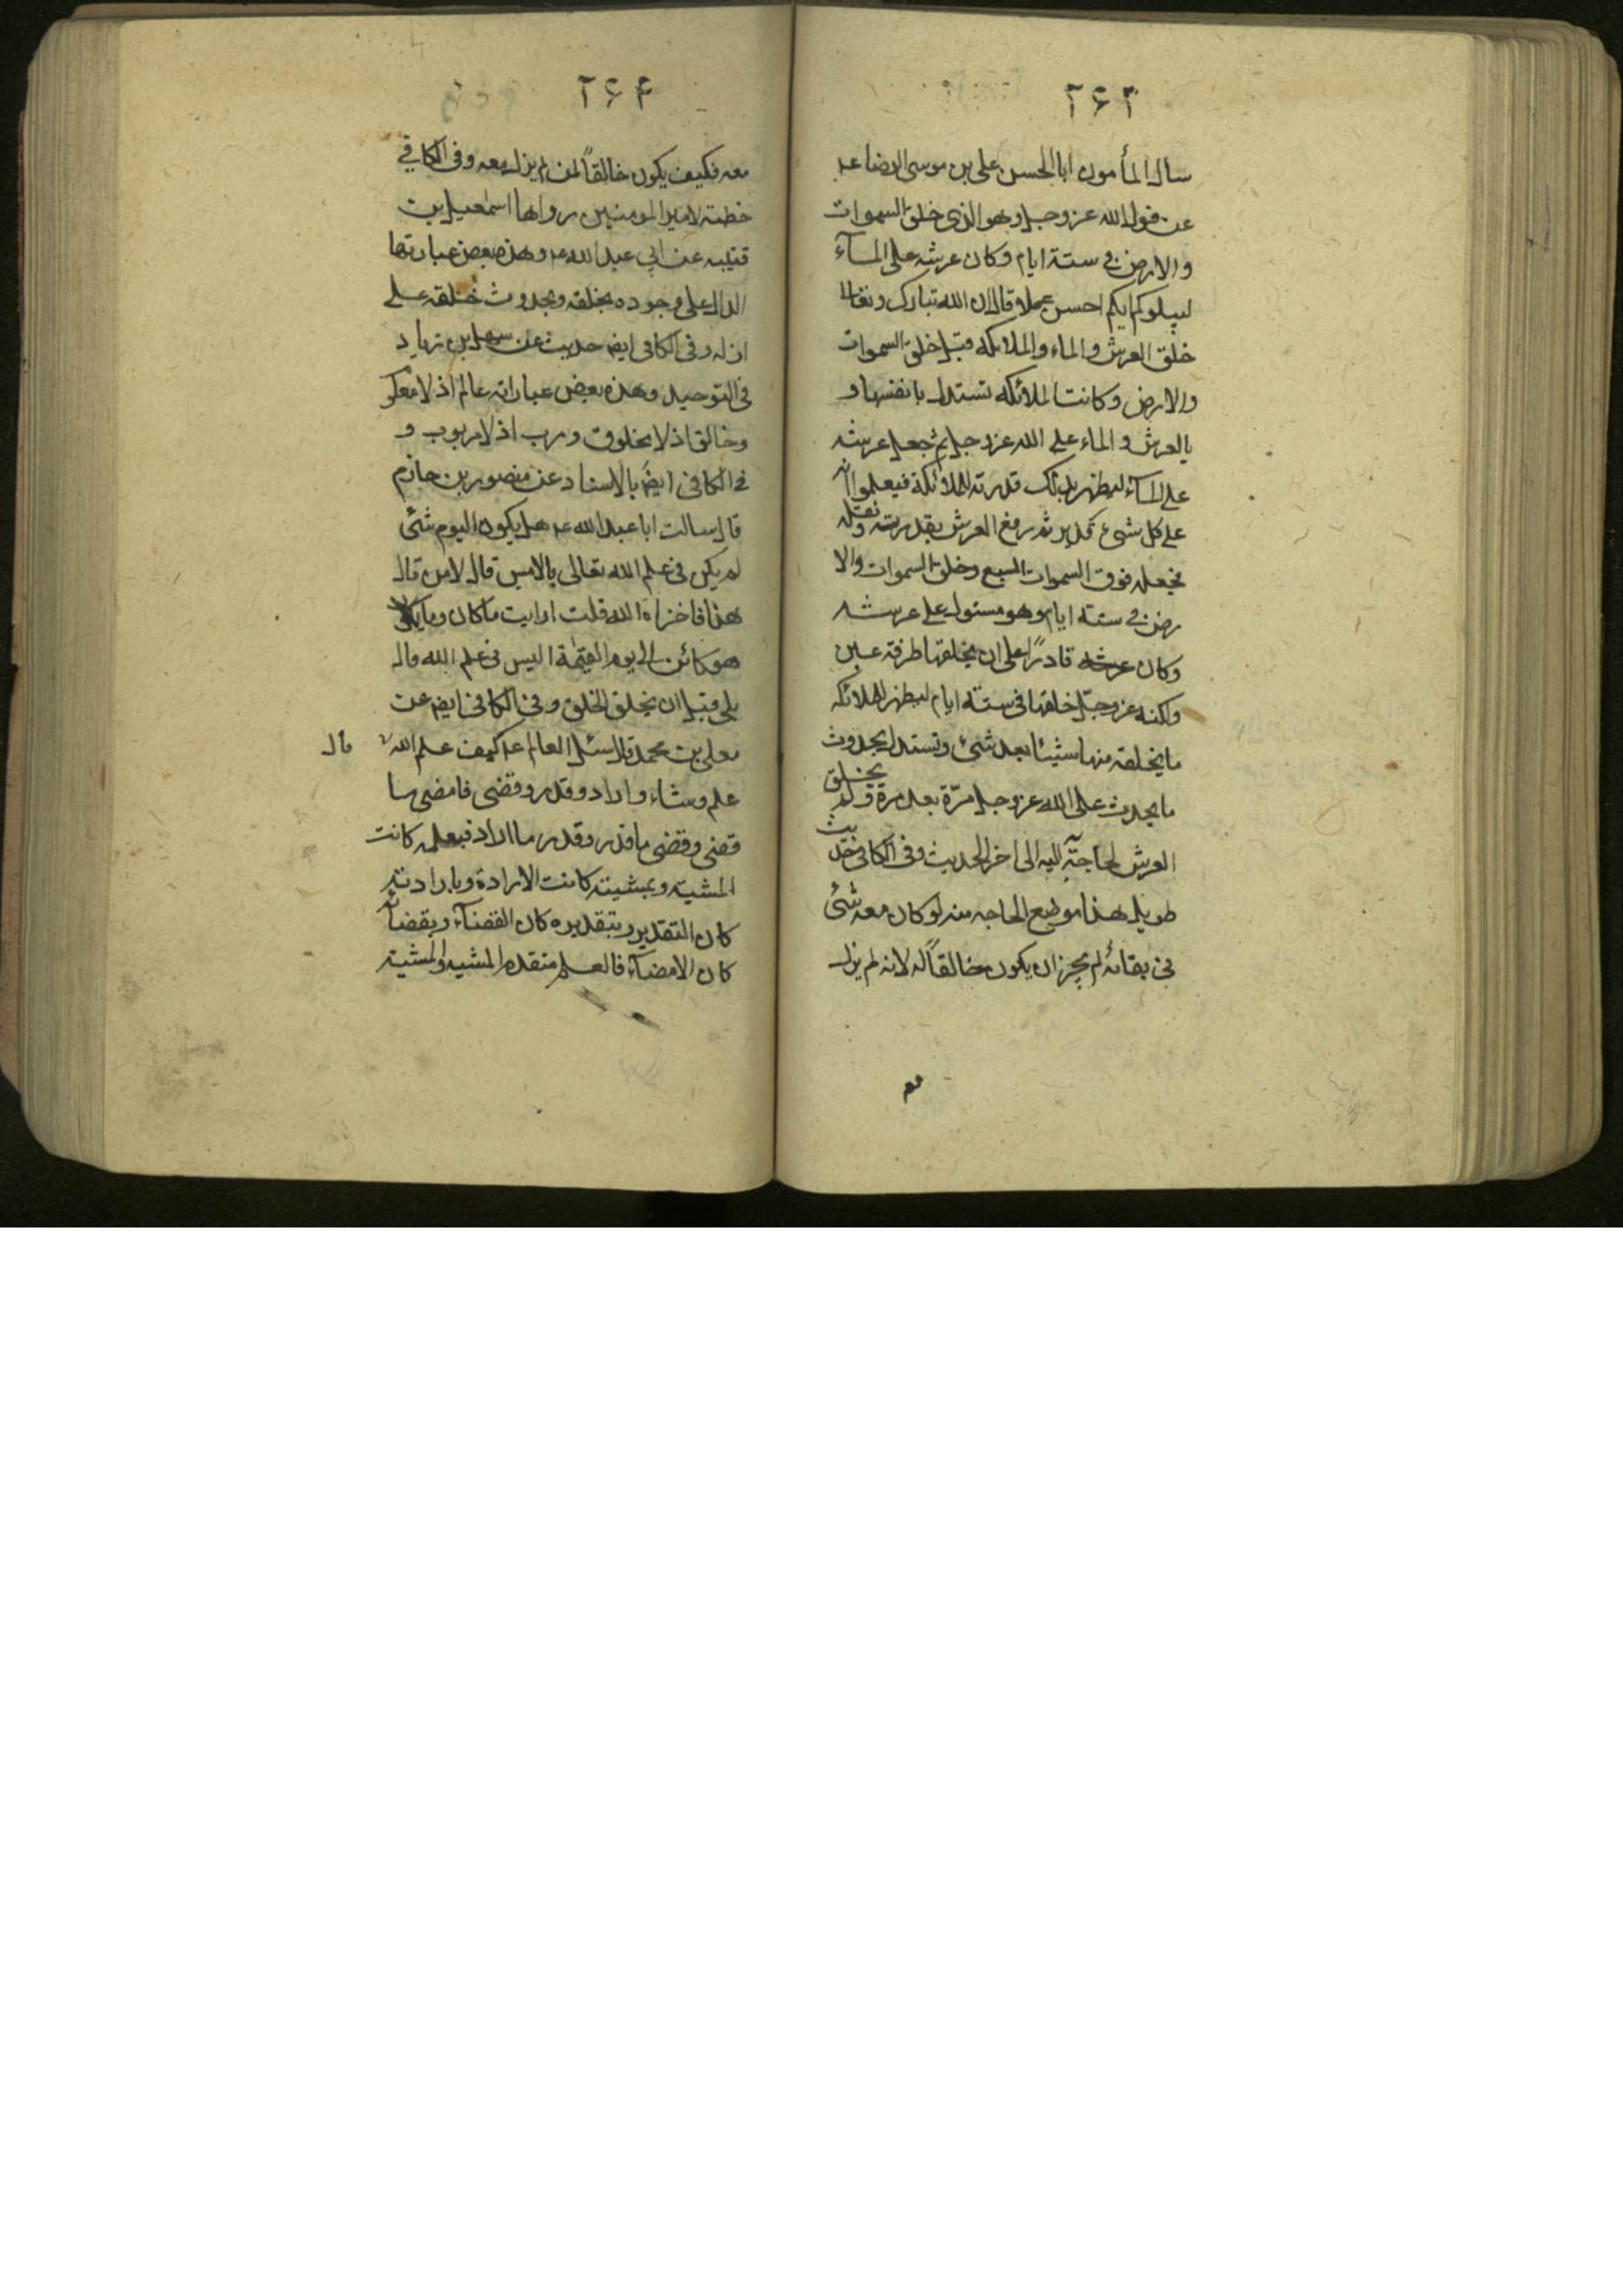 ۲۶۳
سال المأمون ابا الحسن علی بن موسی الرضا عـ
عن قول الله عز وجل وهو الذی خلق السموات
والارض فی ستة ایام وکان عرشه علی المآء
لیبلوکم ایکم احسن عملا قال ان الله تبارک وتعالی
خلق العرش والماء والملائکه قبل خلق السموات
والارض وکانت الملائکه تستدل بانفسها و
بالعرش والماء علی الله عز وجل ثم جعل عرشه
علی المآء لیظهر بذلک قدرته للملائکة فیعلموا انه
علی کل شیء قدیر ثم رفع العرش بقدرته ونقله
فجعله فوق السموات السبع وخلق السموات والا
رض فی ستة ایام وهو مستول علی عرشه
وکان قادرًا علی ان یخلقها طرفة عین
ولکنه عز وجل خلقها فی ستة ایام لیظهر للملائکه
ما یخلقه منها شیئا بعد شیء وتستدل بحدوث
ما یحدث علی الله عز وجل مرّة بعد مرة ولم یخلق
العرش لحاجة الیه الی اخر الحدیث وفی الکافی حدیث
طویل هذا موضع الحاجه منه لو کان معه شیء
فی بقائه لم یجز ان یکون خالقاً له لانه لم یزل
معه
۲۶۴
معه فکیف یکون خالقاً لمن لم یزل معه وفی الکافی
خطبة لامیر المومنین رواها اسمعیل بن
قتیبه عن ابی عبد الله عـ وهذه بعض عبارتها
الدال علی وجوده بخلقه وبحدوث خلقه علی
ازله وفی الکافی ایضه حدیث عن سهل بن زیاد
فی التوحید وهذه بعض عباراته عالم اذ لا معلوم
وخالق اذ لا مخلوق ورب اذ لا مربوب و
فی الکافی ایضً بالاسناد عن منصور بن حازم
قال سالت ابا عبد الله عـ هل یکون الیوم شیء
لم یکن فی علم الله تعالی بالامس قال لا من قال
هذا فاخزاه الله قلت ارایت ما کان وما
هو کائن الی یوم القیمة الیس فی علم الله قال
بلی قبل ان یخلق الخلق وفی الکافی ایضه عن
معلی بن محمد قال سئل العالم عـ کیف علم الله
قال
علم وشاء واراد وقدر وقضی فامضی ما
قضی وقضی ما قدر وقدر ما اراد فبعلمه کانت
المشیة وبمشیته کانت الارادة وبارادته
کان التقدیر وبتقدیره کان القضآء وبقضائه
کان الامضآء فالعلم متقدم المشیه والمشیة